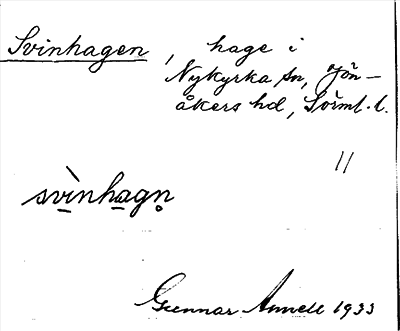 Svinhagen, hage i
Nykyrka sn, Jön-
åkers hd, Sörml. l.
11
svìnhagn̥
Gunnar 1933